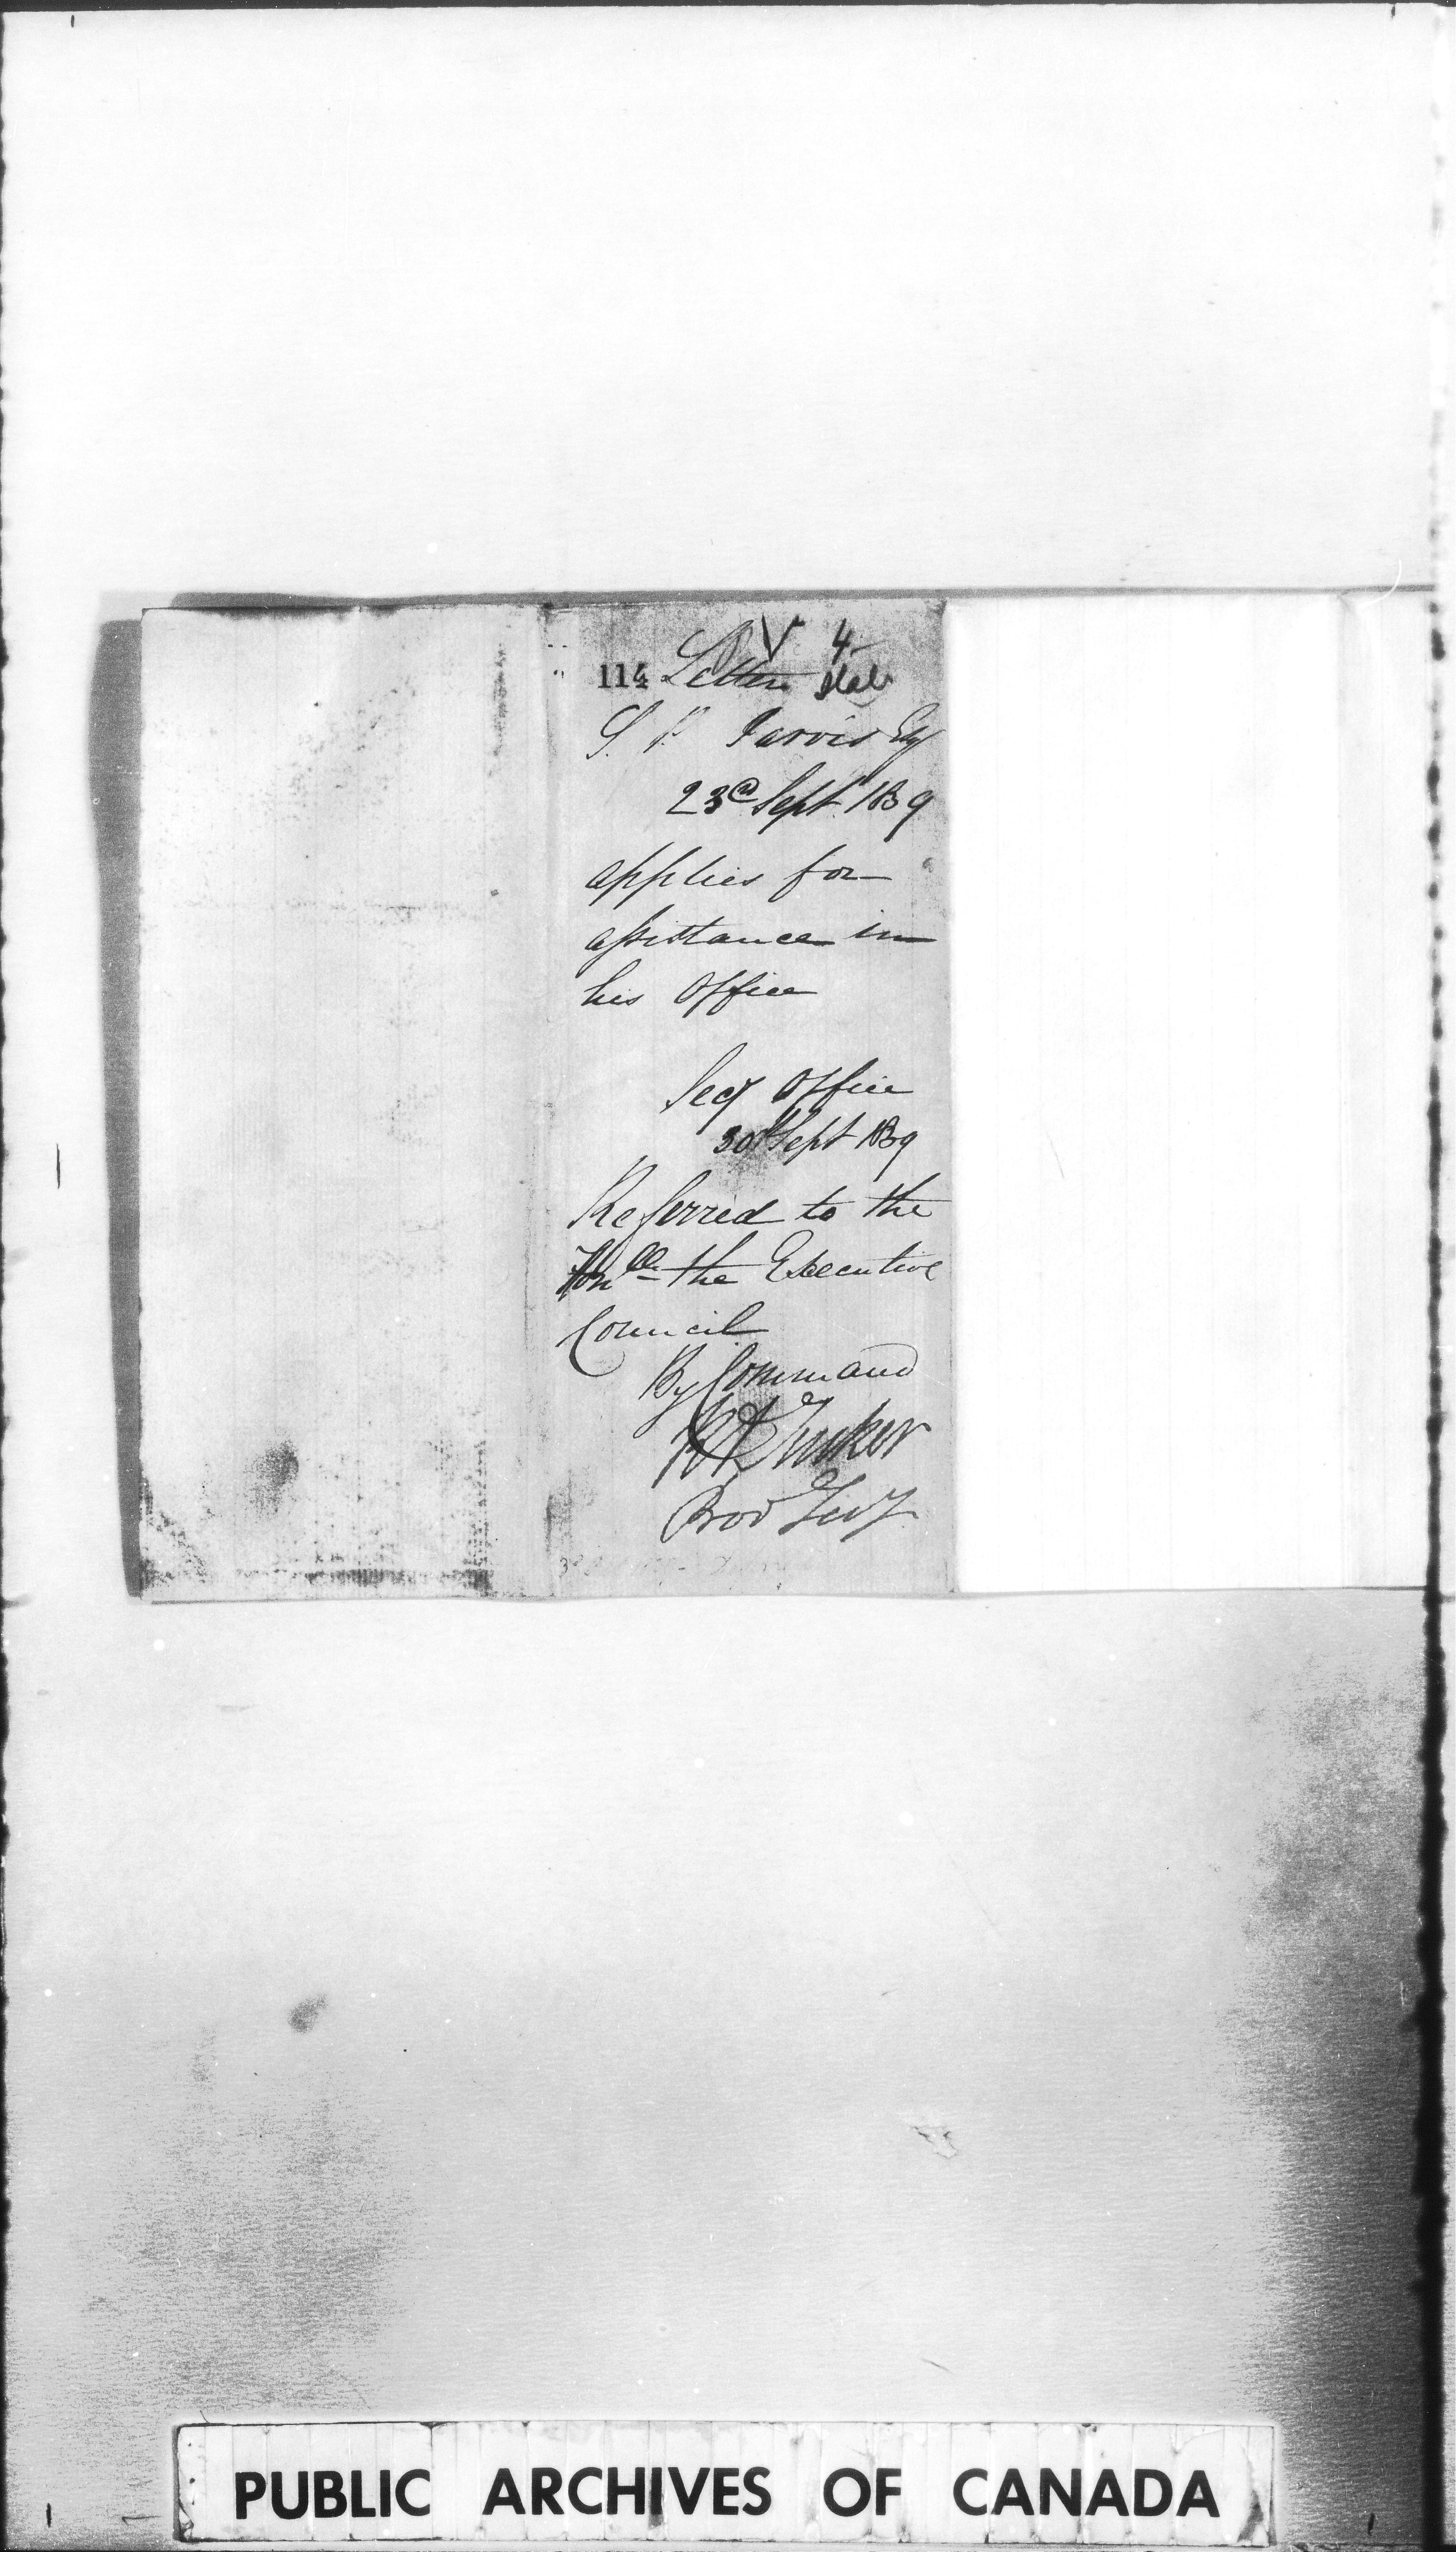 V 4
114 Letter State
S. P. Jarvis Esq
23d Sept 1839
applies for
assistance in
his Office
Secy Office
30th Sept 1839
Referred to the
Honble the Executive
Council
By Command
R A Tucker
Prov Secy
PUBLIC ARCHIVES OF CANADA